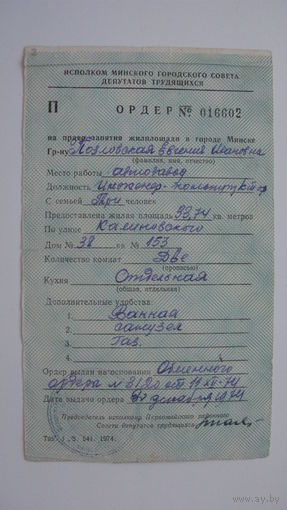 ИСПОЛКОМ МИНСКОГО ГОРОДСКОГО СОВЕТА
ДЕПУТАТОВ ТРУДЯЩИХСЯ
П ОРДЕР № 016602
на право занятия жилплощади в городе Минске
Гр-ну Козловская Евгения Ивановна
(фамилия, имя, отчество)
Место работы автозавод
Должность
С семьей Три человек
Предоставлена жилая площадь 33,74 кв. метров
По улице Калиновского
Дом № 38 кв № 153
Количество комнат Две
(прописью)
Кухня Отдельная
(общая, отдельная)
Дополнительные удобства:
1. Ванная
2. санузел
3. Газ.
4.
Ордер выдан на основании Обменного
ордера № 3120 от 11 XII-74
Дата выдачи ордера декабря 1974
Председатель исполкома Первомайского районного
Совета депутатов трудящихся
Тип. 1, З. 541. 1974.
www.ay.by